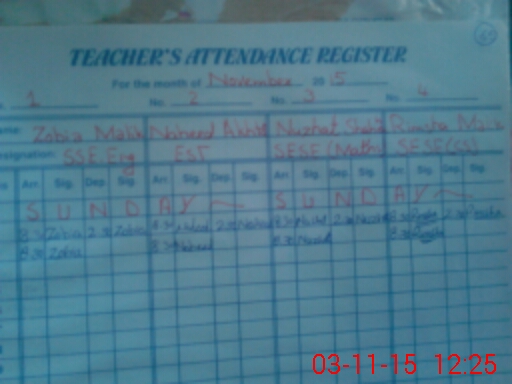 TEACHER'S ATTENDANCE REGISTER
For the month of November 2015
1 No. 2 No. 3 No. 4
Name: Zobia Malik Naheed Akhtar Nuzhat Rimsha Malik
Designation: SSE. Eng EST SESE (Maths) SESE (CS)
Arr. Sig. Dep. Sig. Arr. Sig. Dep. Sig. Arr. Sig. Dep. Sig. Arr. Sig. Dep. Sig.
S U N D A Y S U N D A Y
8:30 Zobia 2:30 Zobia 8:30 Naheed 2:30 Naheed 8:30 Nuzhat 2:30 Nuzhat 8:30 Rimsha 2:30 Rimsha
8:30 Zobia 8:30 Naheed 8:30 Nuzhat 8:30 Rimsha
03-11-15 12:25